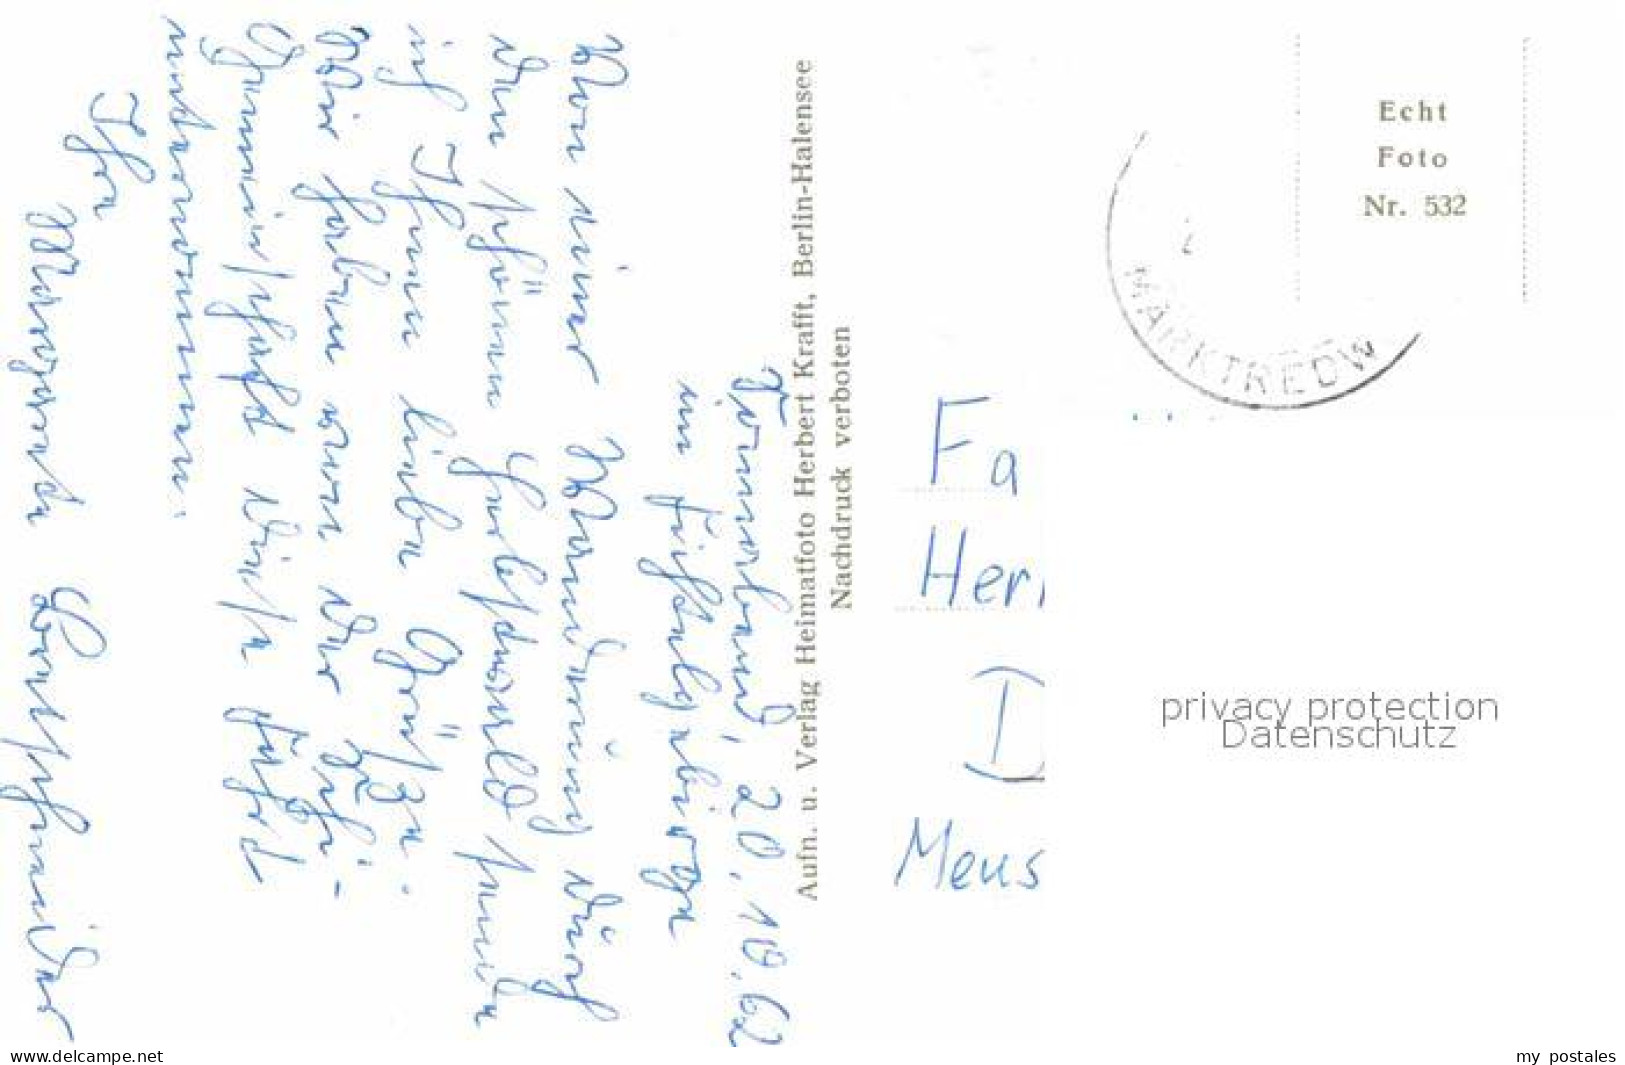 Sonnabend, 20.10.62
im Fichtelgebirge
Von einer Wanderung durch
den schönen Herbstwald sende
ich Ihnen liebe Grüße.
Wir haben von der Schi-
Gemeinschaft diese Fahrt
unternommen.
Ihre
Margarete
Aufn. u. Verlag Heimatfoto Herbert Krafft, Berlin-Halensee
Nachdruck verboten
Echt
Foto
Nr. 532
MARKTREDW
Fa
Her
I
Meus
privacy protection
Datenschutz
www.delcampe.net
my postales